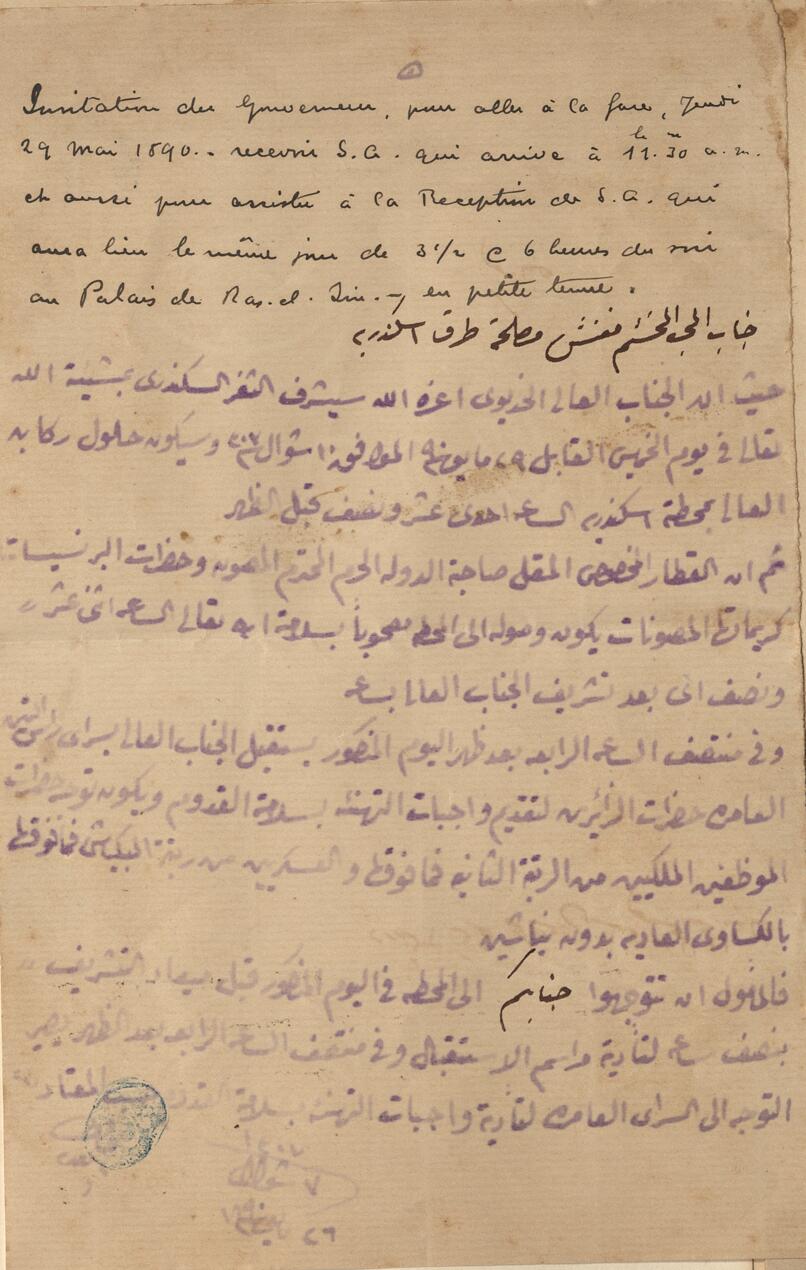 Invitation du Gouverneur, pour aller à la gare, Jeudi
29 Mai 1890. - recevoir S.A. qui arrive à 11.30 a.m.
et aussi pour assister à la Reception de S.A. qui
aura lieu le même jour de 3 1/2 @ 6 heures du soir
au Palais de Ras.el.Tin. - en petite tenue.
جناب المحتشم مفتش مصلحة طرق اسكندريه
حيث ان الجناب العالى الخديوى اعزه الله سيشرف الثغر السكندرى بمشيئة الله
تعالى فى يوم الخميس القابل ٢٩ مايو الموافق ١٠ شوال وسيكون حلول ركابه
العالى بمحطة اسكندريه الساعه احدى عشر ونصف قبل الظهر
ثم ان القطار الخصوصى المقل صاحبة الدوله الحرم المحترم المصونه وحضرات البرنسيسات
كريماتها المصونات يكون وصوله الى المحطه مصحوباً بسلامة الله تعالى الساعه اثنى عشر
ونصف اى بعد تشريف الجناب العالى بساعه
وفى منتصف الساعه الرابعه بعد ظهر اليوم المذكور يستقبل الجناب العالى بسراى راس التين
العامره حضرات الزائرين لتقديم واجبات التهنئه بسلامة القدوم ويكون توجه حضرات
الموظفين الملكيين من الرتبة الثانيه فما فوقها والعسكريين من رتبة البيكباشى فما فوقها
بالكساوى العاديه بدون نياشين
فالمأمول ان تتوجهوا جنابكم الى المحطه فى اليوم المذكور قبل ميعاد التشريف
بنصف ساعه لتأدية مراسم الاستقبال وفى منتصف الساعه الرابعه بعد الظهر يصير
التوجه الى السراى العامره لتأدية واجبات التهنئه بسلامة القدوم حسب المعتاد
٧ شوال
٢٦ مايو